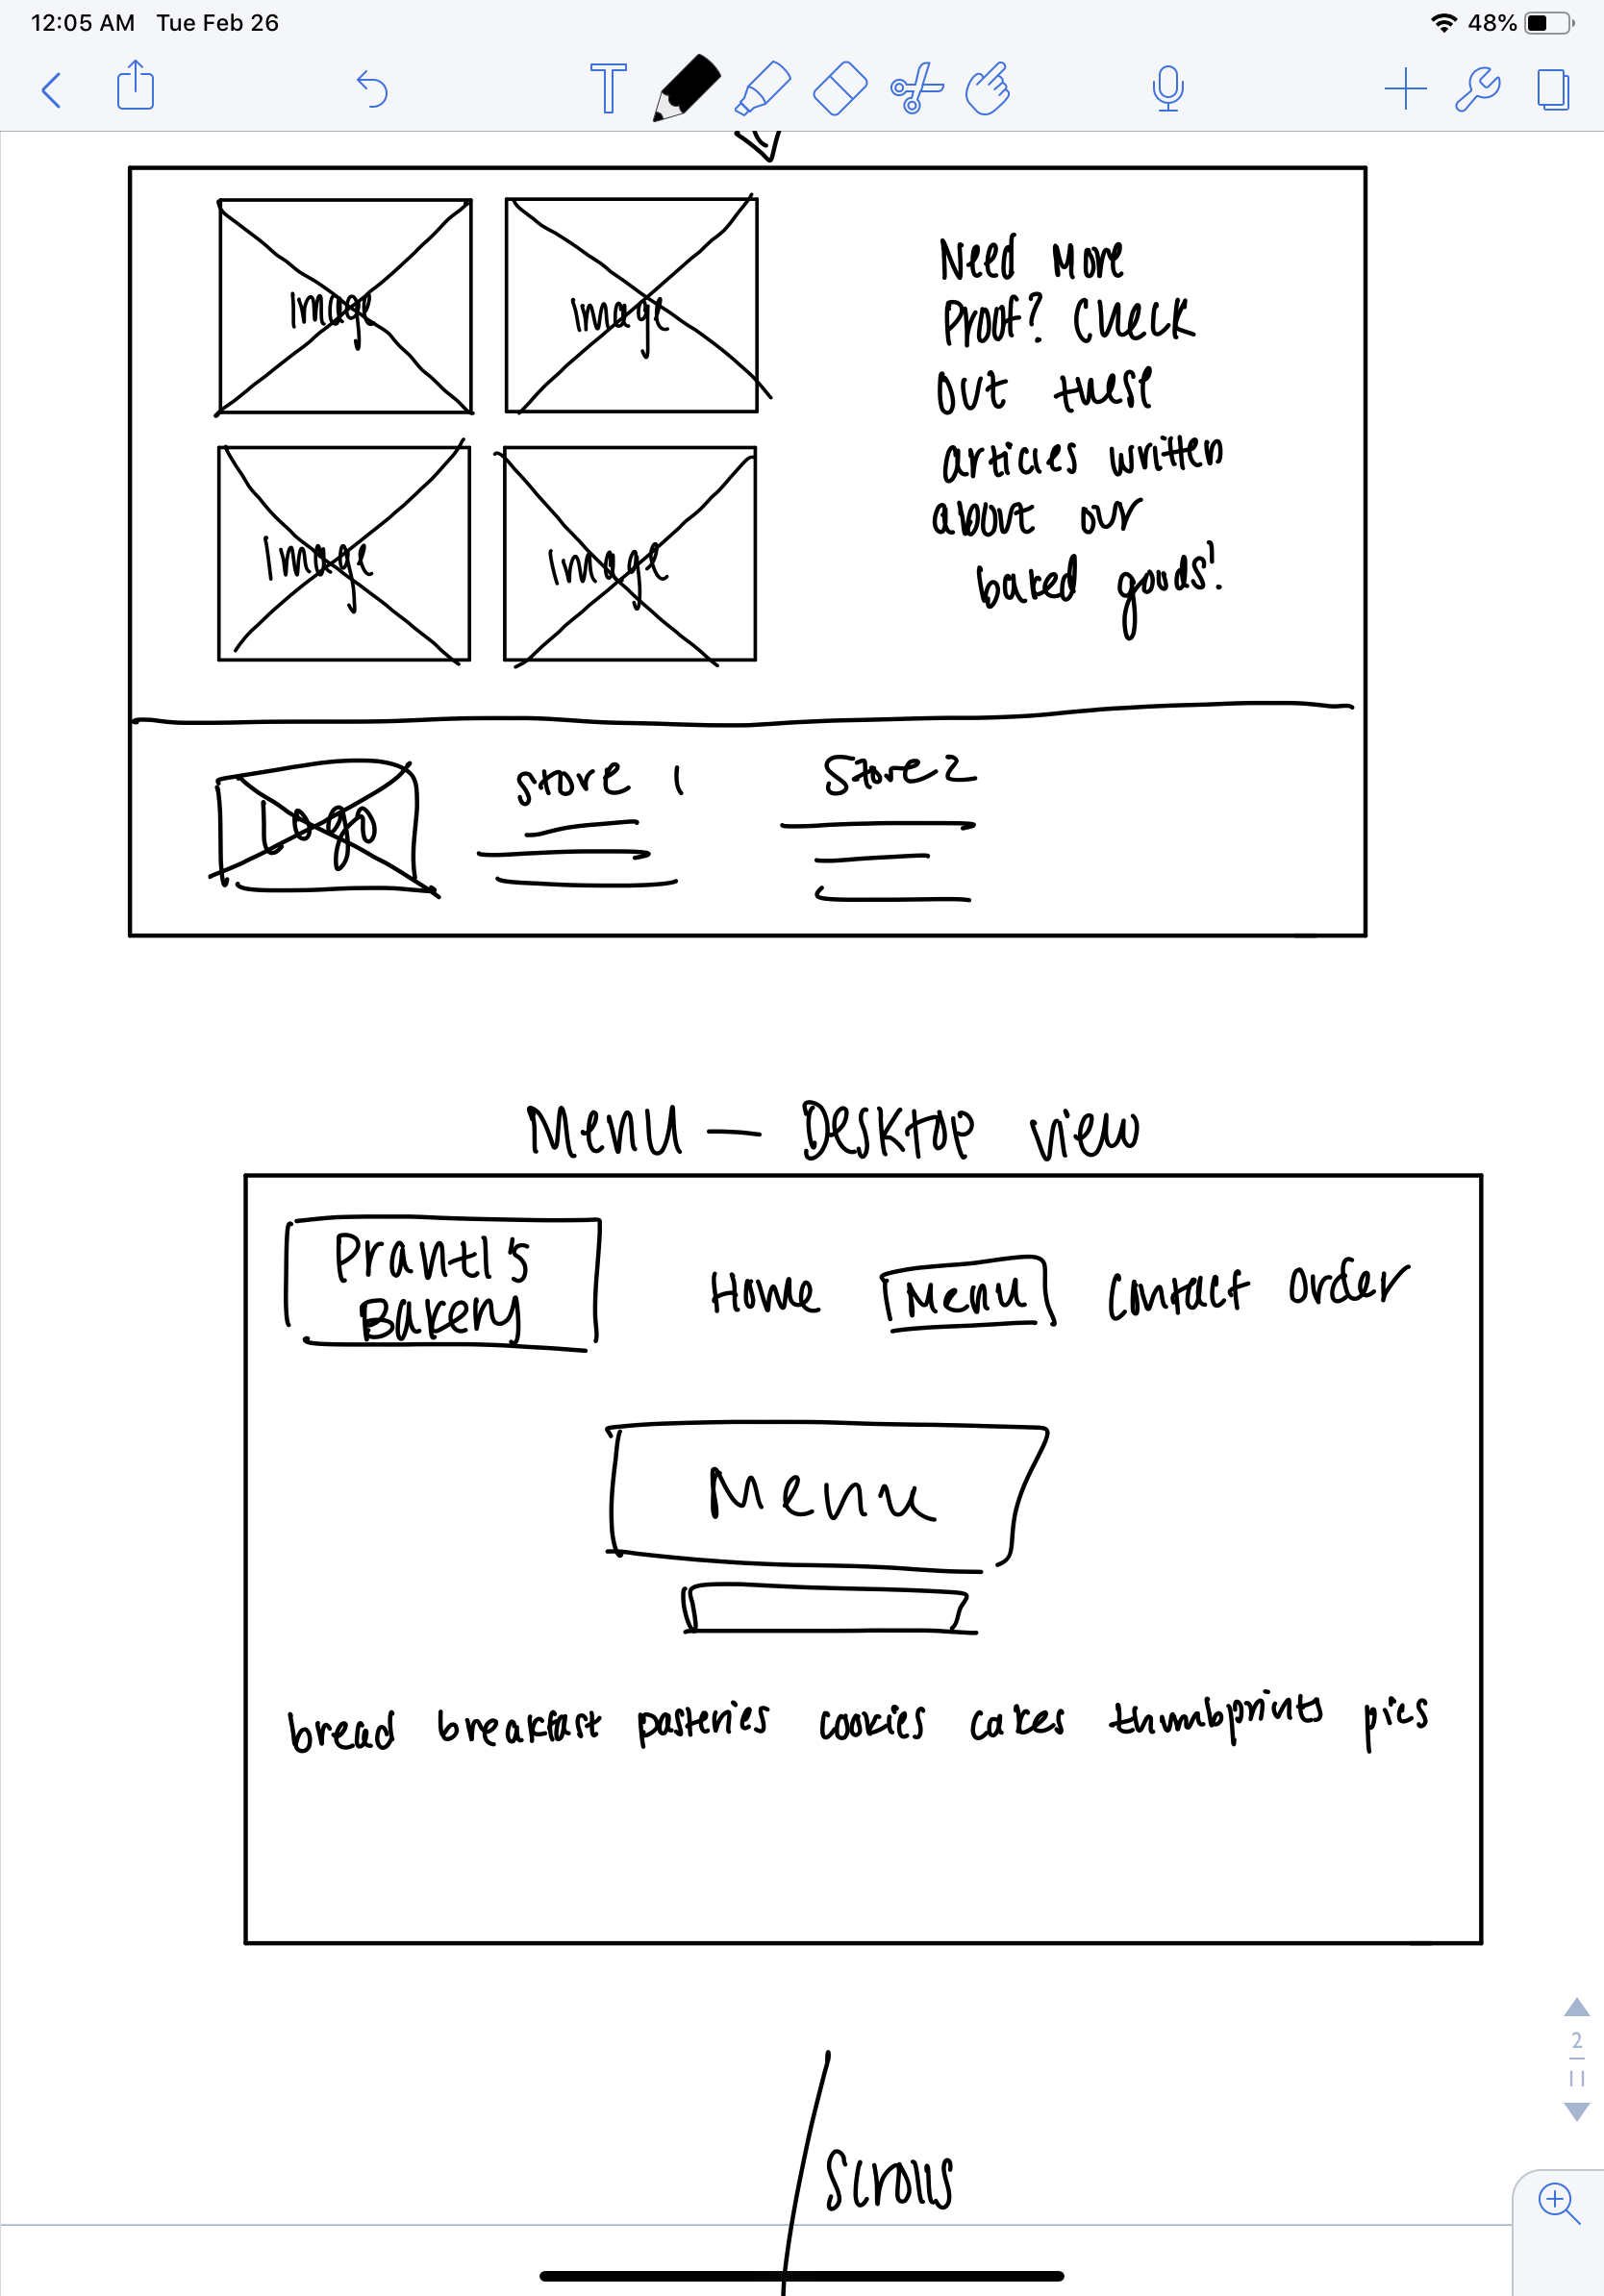 12:05 AM Tue Feb 26
48%
Image
Image
Need More
Proof? Check
out these
articles written
about our
baked goods!
Image
Image
Logo
Store 1
Store 2
Menu — Desktop view
Prantl's
Bakery
Home Menu Contact Order
Menu
bread breakfast pastries cookies cakes thumbprints pies
2
11
Scrolls